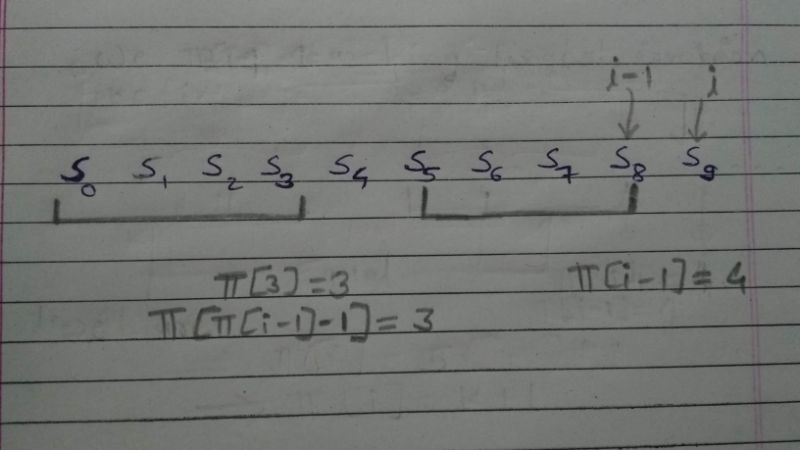 i-1 i
S₀ S₁ S₂ S₃ S₄ S₅ S₆ S₇ S₈ S₉
π[3]=3 π[i-1]=4
π[π[i-1]-1]=3